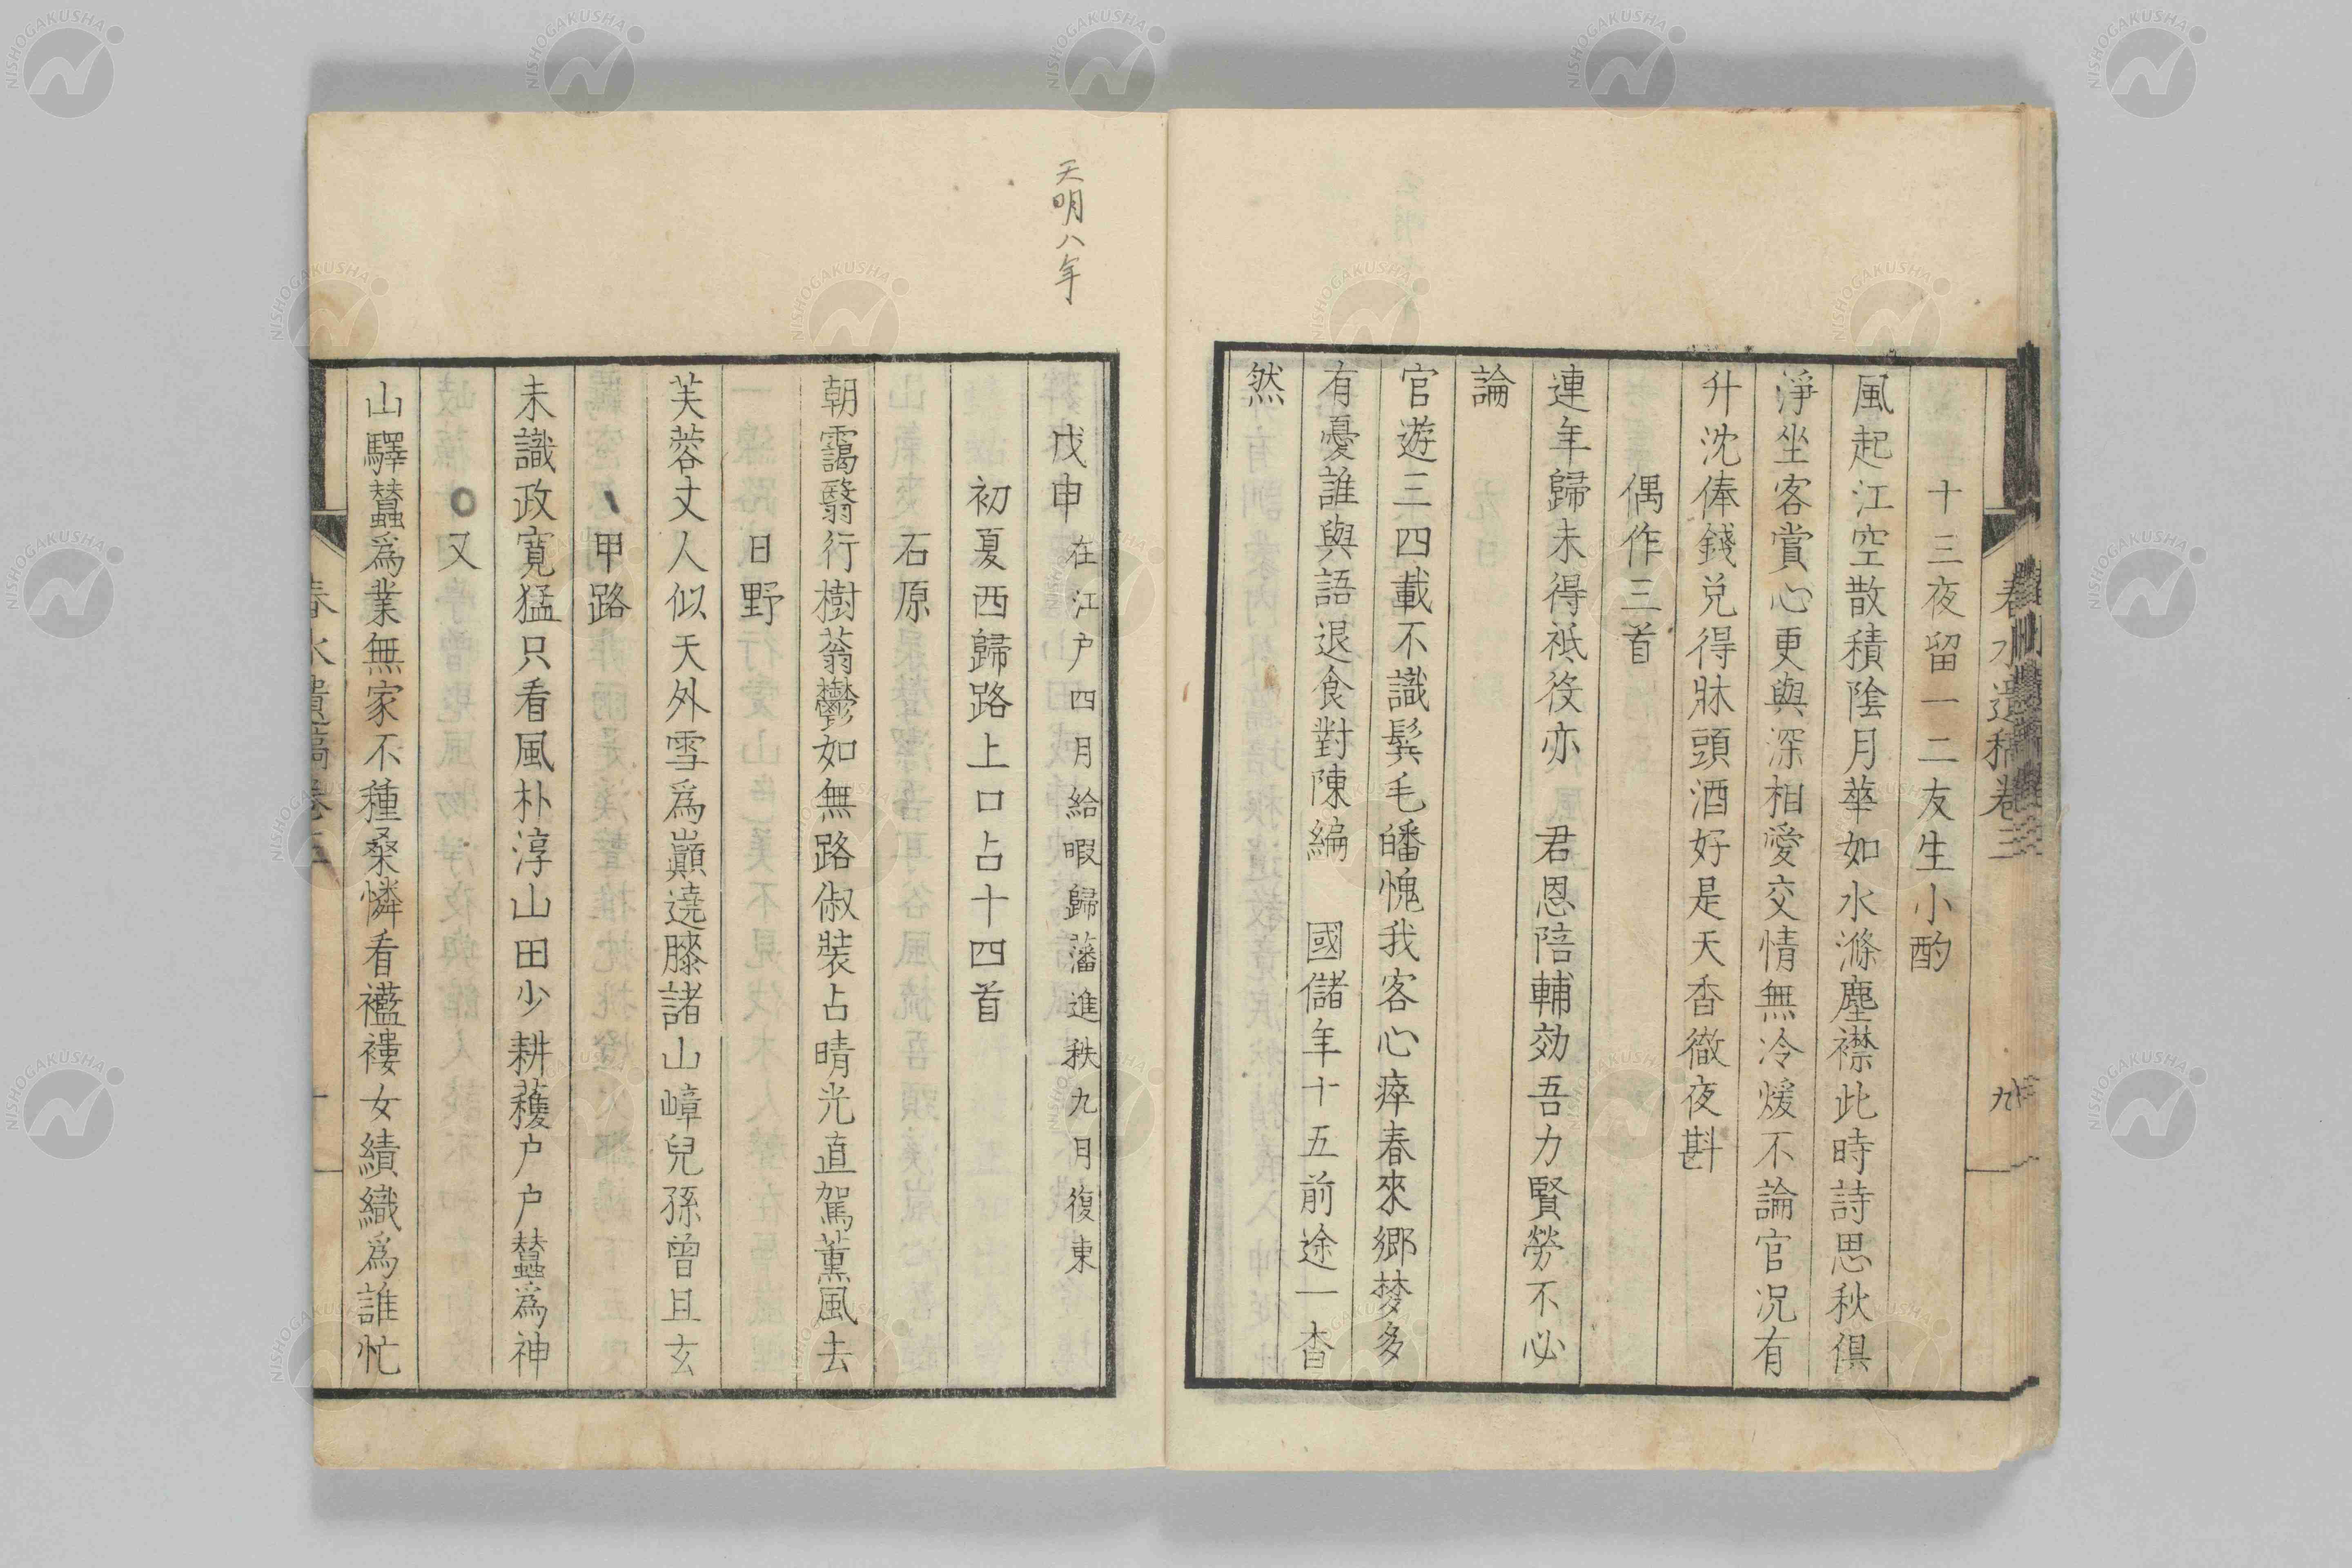 春水遺稿卷三
九
十三夜留一二友生小酌
風起江空散積陰月華如水滌塵襟此時詩思秋俱
淨坐客賞心更與深相愛交情無冷煖不論官况有
升沈俸錢兌得牀頭酒好是天香徹夜斟
偶作三首
連年歸未得祗役亦 君恩陪輔効吾力賢勞不必
論
官遊三四載不識鬂毛皤愧我客心瘁春來鄉梦多
有憂誰與語退食對陳編 國儲年十五前途一杳
然
天明八年
戊申 在江户四月給暇歸藩進秩九月復東
初夏西歸路上口占十四首
石原
朝靄翳行樹蓊鬱如無路俶裝占晴光直駕薫風去
日野
芙蓉丈人似天外雪爲巓遶膝諸山嶂兒孫曾且玄
甲路
未識政寛猛只看風朴淳山田少耕穫户户蠶爲神
又
山驛蠶爲業無家不種桑憐看襤褸女績織爲誰忙
春水遺稿卷三
十
NISHOGAKUSHA